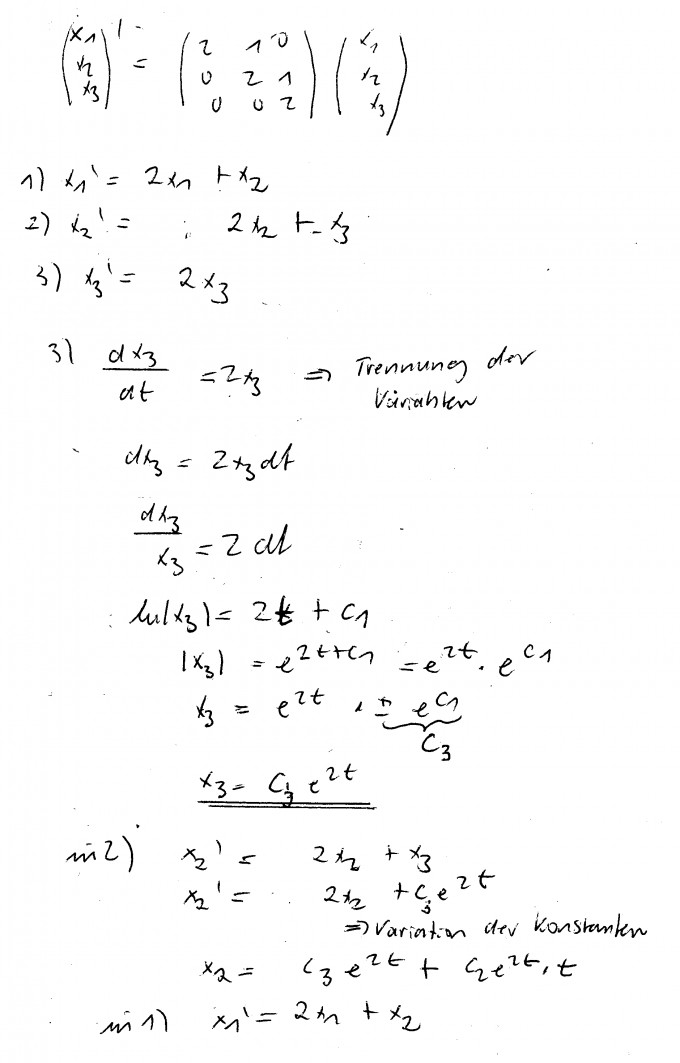 (x1 x2 x3)' = (2 1 0 0 2 1 0 0 2) (x1 x2 x3)
1) x1' = 2x1 + x2
2) x2' = 2x2 + x3
3) x3' = 2x3
3) dx3/dt = 2x3 ⇒ Trennung der
Variablen
dx3 = 2x3 dt
dx3/x3 = 2 dt
ln|x3| = 2t + C1
|x3| = e^(2t+C1) = e^(2t) · e^(C1)
x3 = e^(2t) · ± e^(C1)
C3
x3 = C3 e^(2t)
in 2) x2' = 2x2 + x3
x2' = 2x2 + C3 e^(2t)
⇒ Variation der Konstanten
x2 = C3 e^(2t) + C2 e^(2t) · t
in 1) x1' = 2x1 + x2